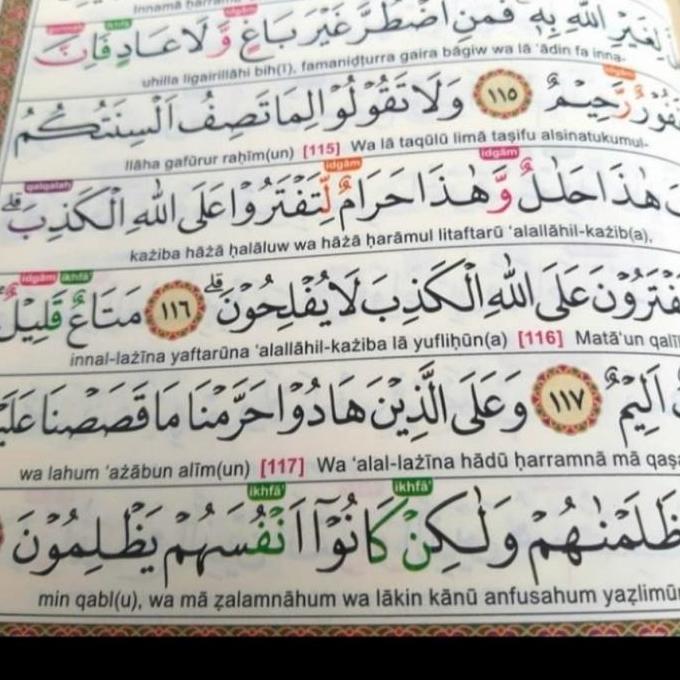 Innamā ḥarrama
لِغَيْرِ اللّٰهِ بِهٖ فَمَنِ اضْطُرَّ غَيْرَ بَاغٍ وَّلَا عَادٍ فَاِنَّ
uhilla ligairillāhi bih(ī), famaniḍṭurra gaira bāgiw wa lā ‘ādin fa inna-
idgām
غَفُوْرٌ رَّحِيْمٌ ١١٥ وَلَا تَقُوْلُوْا لِمَا تَصِفُ اَلْسِنَتُكُمُ
llāha gafūrur raḥīm(un) [115] Wa lā taqūlū limā taṣifu alsinatukumul-
idgām idgām qalqalah
هٰذَا حَلٰلٌ وَّهٰذَا حَرَامٌ لِّتَفْتَرُوْا عَلَى اللّٰهِ الْكَذِبَۗ
każiba hāżā ḥalāluw wa hāżā ḥarāmul litaftarū ‘alallāhil-każib(a),
ikhfā' idgām
يَفْتَرُوْنَ عَلَى اللّٰهِ الْكَذِبَ لَا يُفْلِحُوْنَۗ ١١٦ مَتَاعٌ قَلِيْلٌ
innal-lażīna yaftarūna ‘alallāhil-każiba lā yufliḥūn(a) [116] Matā‘un qalīl
اَلِيْمٌ ١١٧ وَعَلَى الَّذِيْنَ هَادُوْا حَرَّمْنَا مَا قَصَصْنَا
wa lahum ‘ażābun alīm(un) [117] Wa ‘alal-lażīna hādū ḥarramnā mā
ikhfā' ikhfā'
ظَلَمْنٰهُمْ وَلٰكِنْ كَانُوْٓا اَنْفُسَهُمْ يَظْلِمُوْنَ
min qabl(u), wa mā ẓalamnāhum wa lākin kānū anfusahum yaẓlimūn